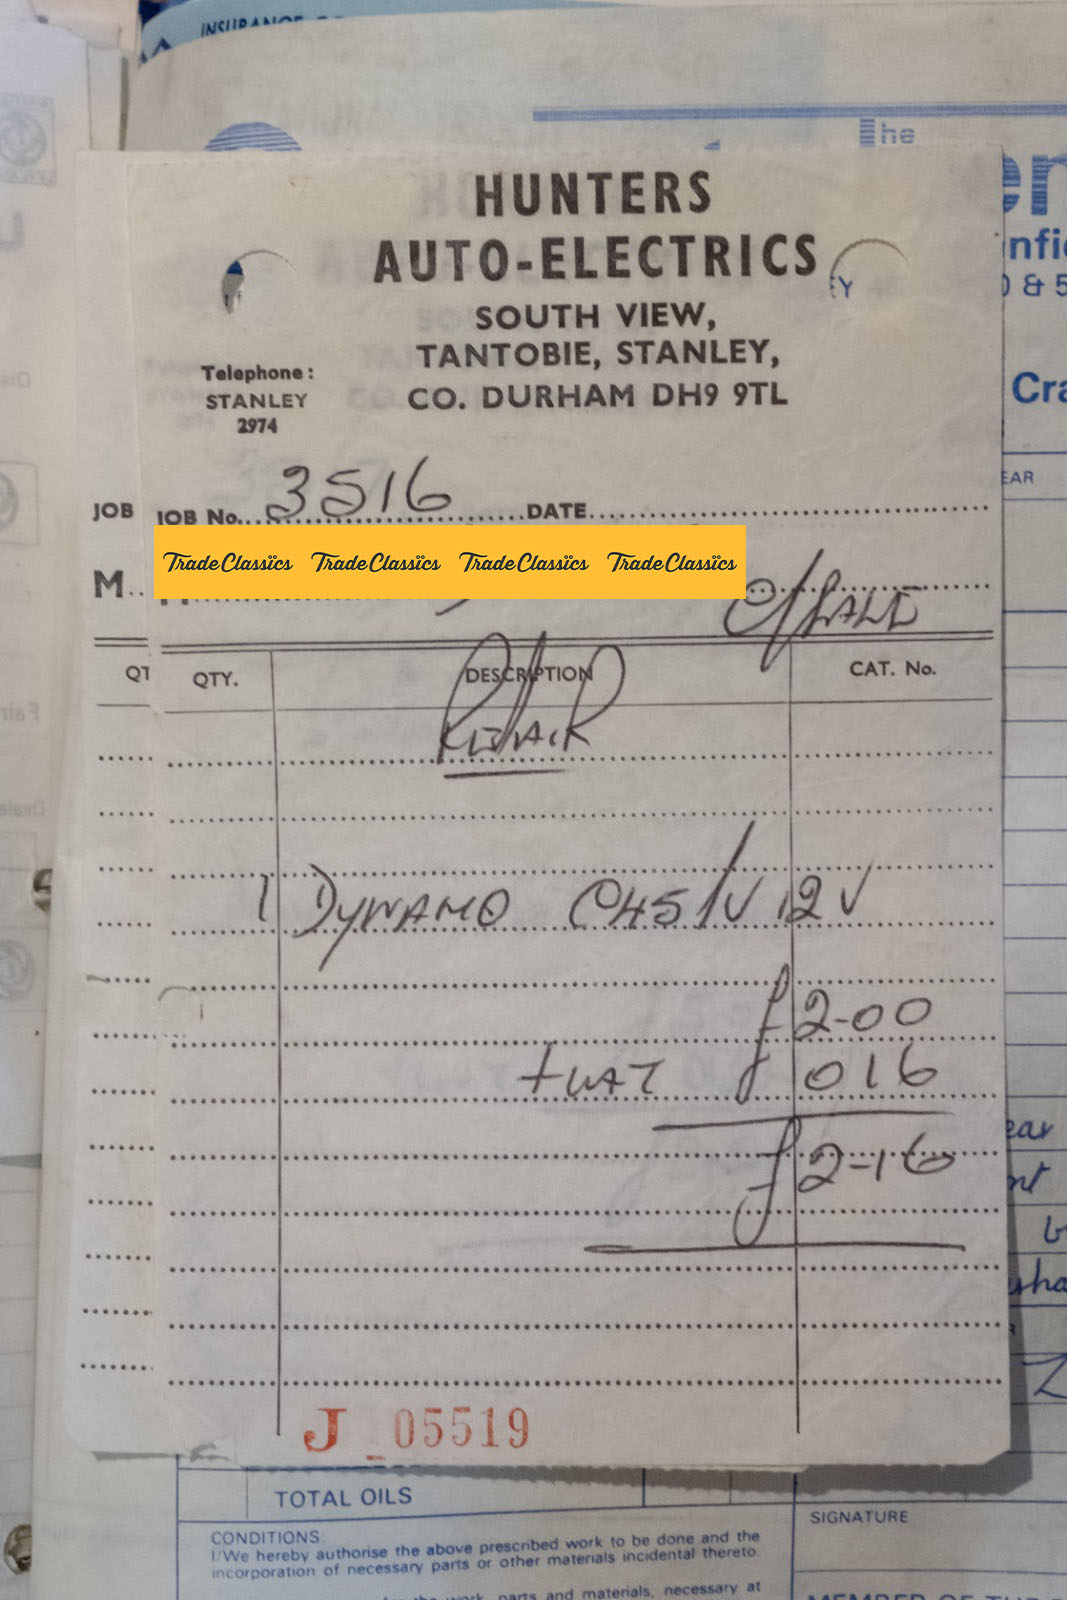 INSURANCE
The
HUNTERS
AUTO-ELECTRICS
SOUTH VIEW,
TANTOBIE, STANLEY,
CO. DURHAM DH9 9TL
Telephone:
STANLEY
2974
JOB No. 3516 DATE
TradeClassics TradeClassics TradeClassics TradeClassics
C/SALE
QTY. DESCRIPTION CAT. No.
REPAIR
1 DYNAMO C45/V 12V
£2-00
+ VAT £ 016
£2-16
J 05519
JOB
M
QT
EY
& 5
Cra
EAR
TOTAL OILS
SIGNATURE
CONDITIONS:
I/We hereby authorise the above prescribed work to be done and the
incorporation of necessary parts or other materials incidental thereto.
work, parts and materials, necessary at
MEMBER OF THE